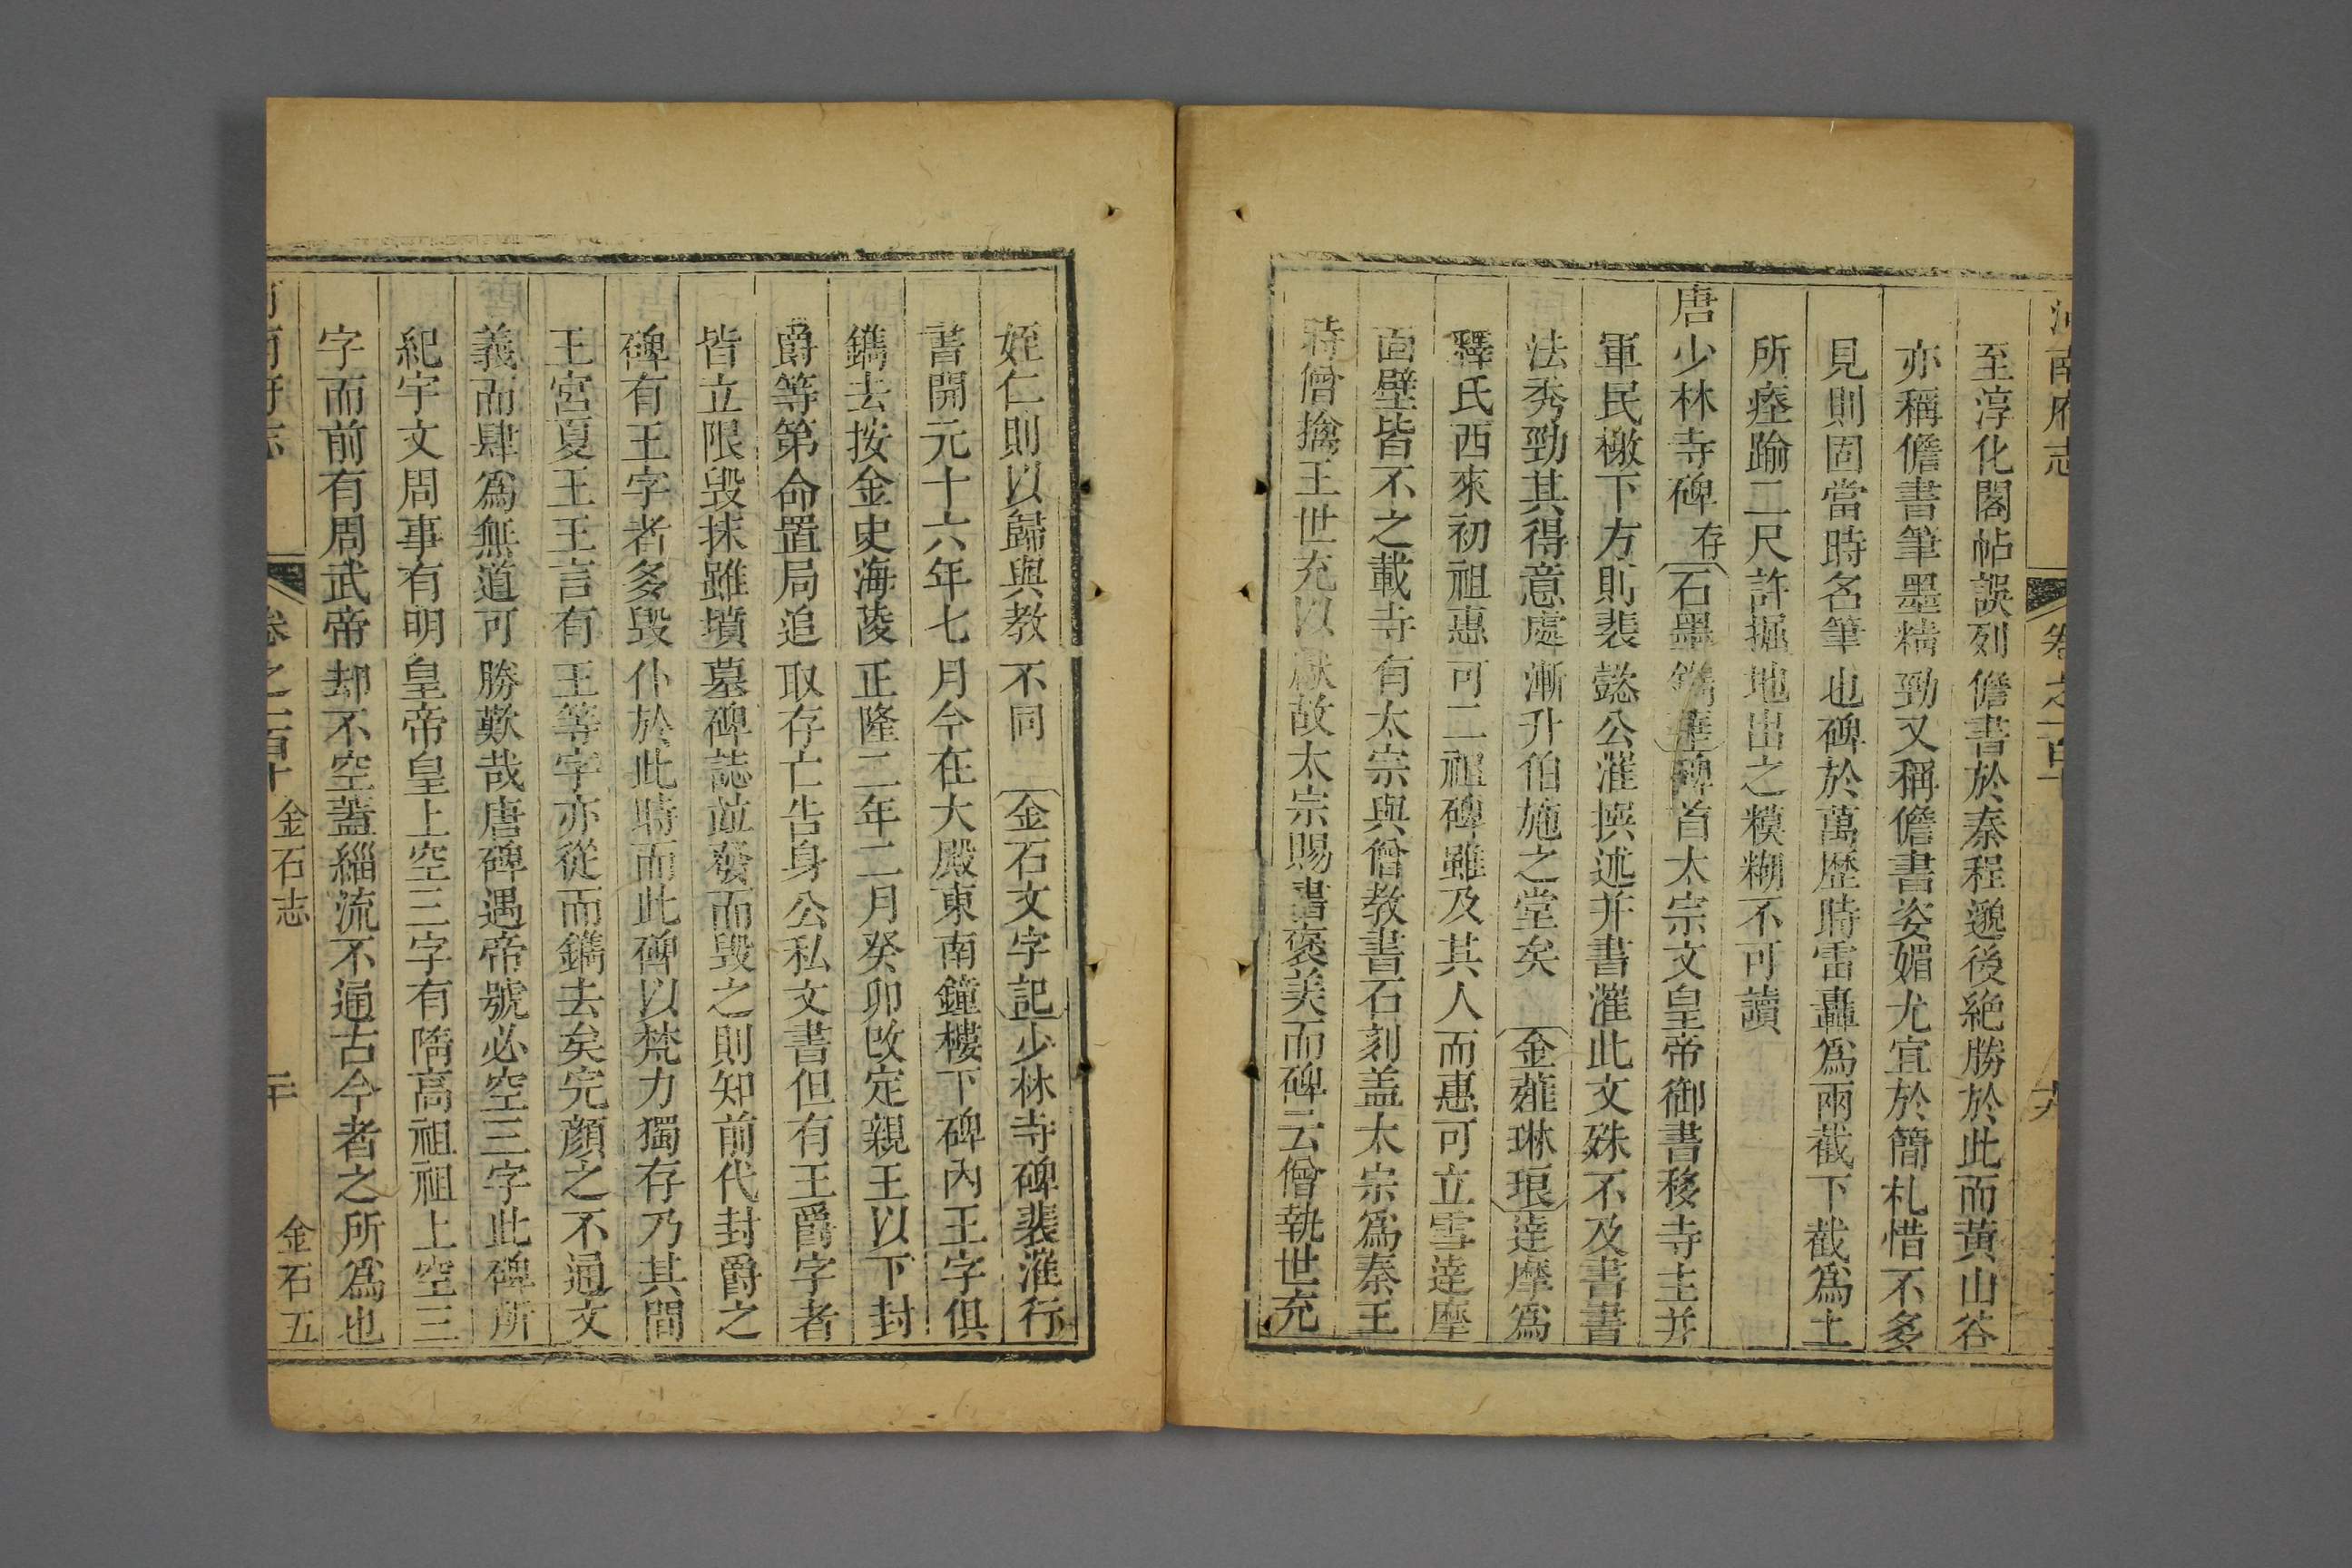 河南府志 卷之一百十 九
至淳化閣帖誤列儋書於秦程邈後絶勝於此而黃山谷
亦稱儋書筆墨精勁又稱儋書姿媚尤宜於簡札惜不多
見則固當時名筆也碑於萬歷時雷轟爲兩截下截爲土
所瘞踰二尺許掘地出之糢糊不可讀
唐少林寺碑存石墨鐫華碑首太宗文皇帝御書移寺主并
軍民檄下方則裴懿公漼撰述并書漼此文殊不及書書
法秀勁其得意處漸升伯施之堂矣 金薤琳琅達摩爲
釋氏西來初祖惠可二祖碑雖及其人而惠可立雪達摩
面壁皆不之載寺有太宗與僧教書石刻盖太宗爲秦王
時僧擒王世充以獻故太宗賜書褒美而碑云僧執世充
姪仁則以歸與教不同 金石文字記少林寺碑裴漼行
書開元十六年七月今在大殿東南鐘樓下碑內王字俱
鐫去按金史海陵正隆二年二月癸卯改定親王以下封
爵等第命置局追取存亡告身公私文書但有王爵字者
皆立限毀抹雖墳墓碑誌並發而毀之則知前代封爵之
碑有王字者多毀仆於此時而此碑以梵力獨存乃其間
王宮夏王王言有王等字亦從而鐫去矣完顏之不通文
義而肆爲無道可勝歎哉唐碑遇帝號必空三字此碑所
紀宇文周事有明皇帝皇上空三字有隋高祖祖上空三
字而前有周武帝却不空蓋緇流不通古今者之所爲也
河南府志 卷之一百十 金石志 二十 金石五